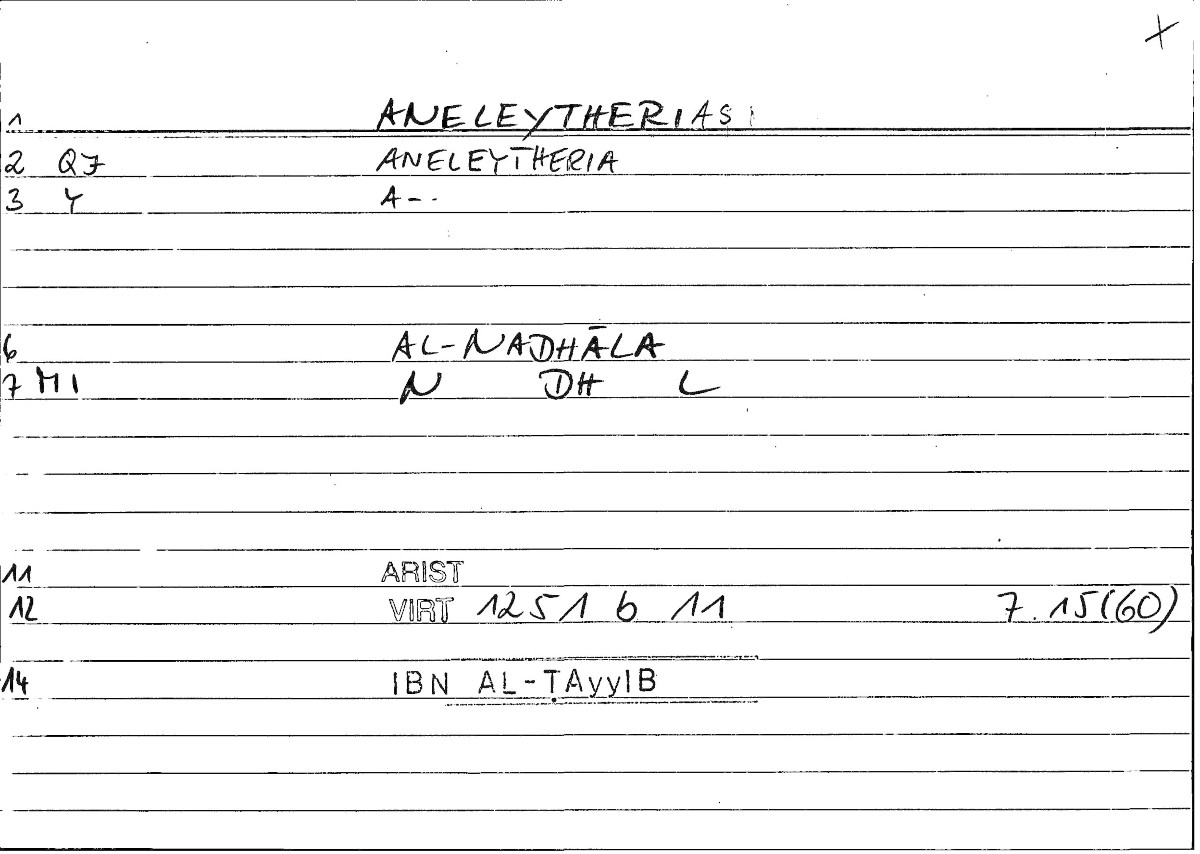 X
1 ANELEYTHERIAS
2 Q7 ANELEYTHERIA
3 Y A--
6 AL-NADHĀLA
7 M1 N DH L
11 ARIST
12 VIRT 1251 b 11 7.15(60)
14 IBN AL-ṬAyyIB